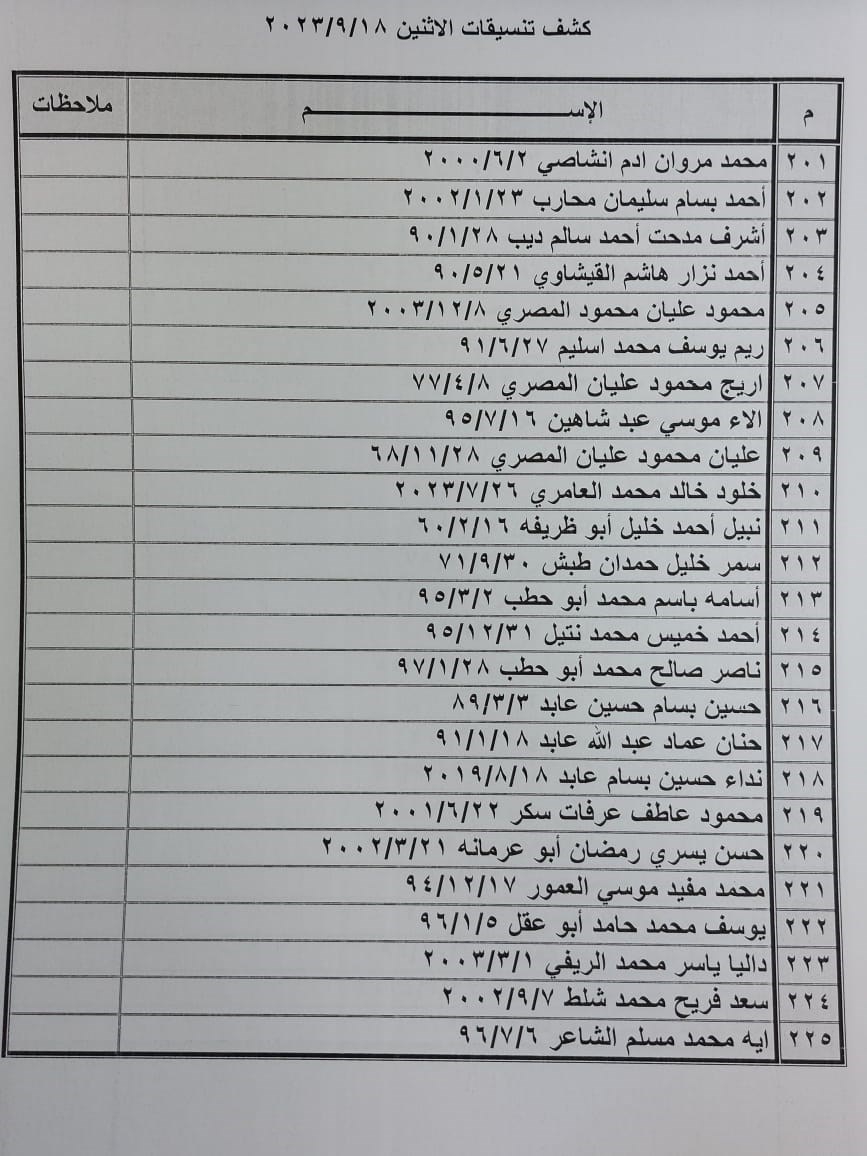 كشف تنسيقات الاثنين ٢٠٢٣/٩/١٨
م الإســـــــم ملاحظات
٢٠١ محمد مروان ادم انشاصي ٢٠٠٠/٦/٢
٢٠٢ أحمد بسام سليمان محارب ٢٠٠٢/١/٢٣
٢٠٣ أشرف مدحت أحمد سالم ديب ٩٠/١/٢٨
٢٠٤ أحمد نزار هاشم القيشاوي ٩٠/٥/٢١
٢٠٥ محمود عليان محمود المصري ٢٠٠٣/١٢/٨
٢٠٦ ريم يوسف محمد اسليم ٩١/٦/٢٧
٢٠٧ اريج محمود عليان المصري ٧٧/٤/٨
٢٠٨ الاء موسي عبد شاهين ٩٥/٧/١٦
٢٠٩ عليان محمود عليان المصري ٦٨/١١/٢٨
٢١٠ خلود خالد محمد العامري ٢٠٢٣/٧/٢٦
٢١١ نبيل أحمد خليل أبو ظريفه ٦٠/٢/١٦
٢١٢ سمر خليل حمدان طبش ٧١/٩/٣٠
٢١٣ أسامه باسم محمد أبو حطب ٩٥/٣/٢
٢١٤ أحمد خميس محمد نتيل ٩٥/١٢/٣١
٢١٥ ناصر صالح محمد أبو حطب ٩٧/١/٢٨
٢١٦ حسين بسام حسين عابد ٨٩/٣/٣
٢١٧ حنان عماد عبد الله عابد ٩١/١/١٨
٢١٨ نداء حسين بسام عابد ٢٠١٩/٨/١٨
٢١٩ محمود عاطف عرفات سكر ٢٠٠١/٦/٢٢
٢٢٠ حسن يسري رمضان أبو عرمانه ٢٠٠٢/٣/٢١
٢٢١ محمد مفيد موسي العمور ٩٤/١٢/١٧
٢٢٢ يوسف محمد حامد أبو عقل ٩٦/١/٥
٢٢٣ داليا ياسر محمد الريفي ٢٠٠٣/٣/١
٢٢٤ سعد فريح محمد شلط ٢٠٠٢/٩/٧
٢٢٥ ايه محمد مسلم الشاعر ٩٦/٧/٦